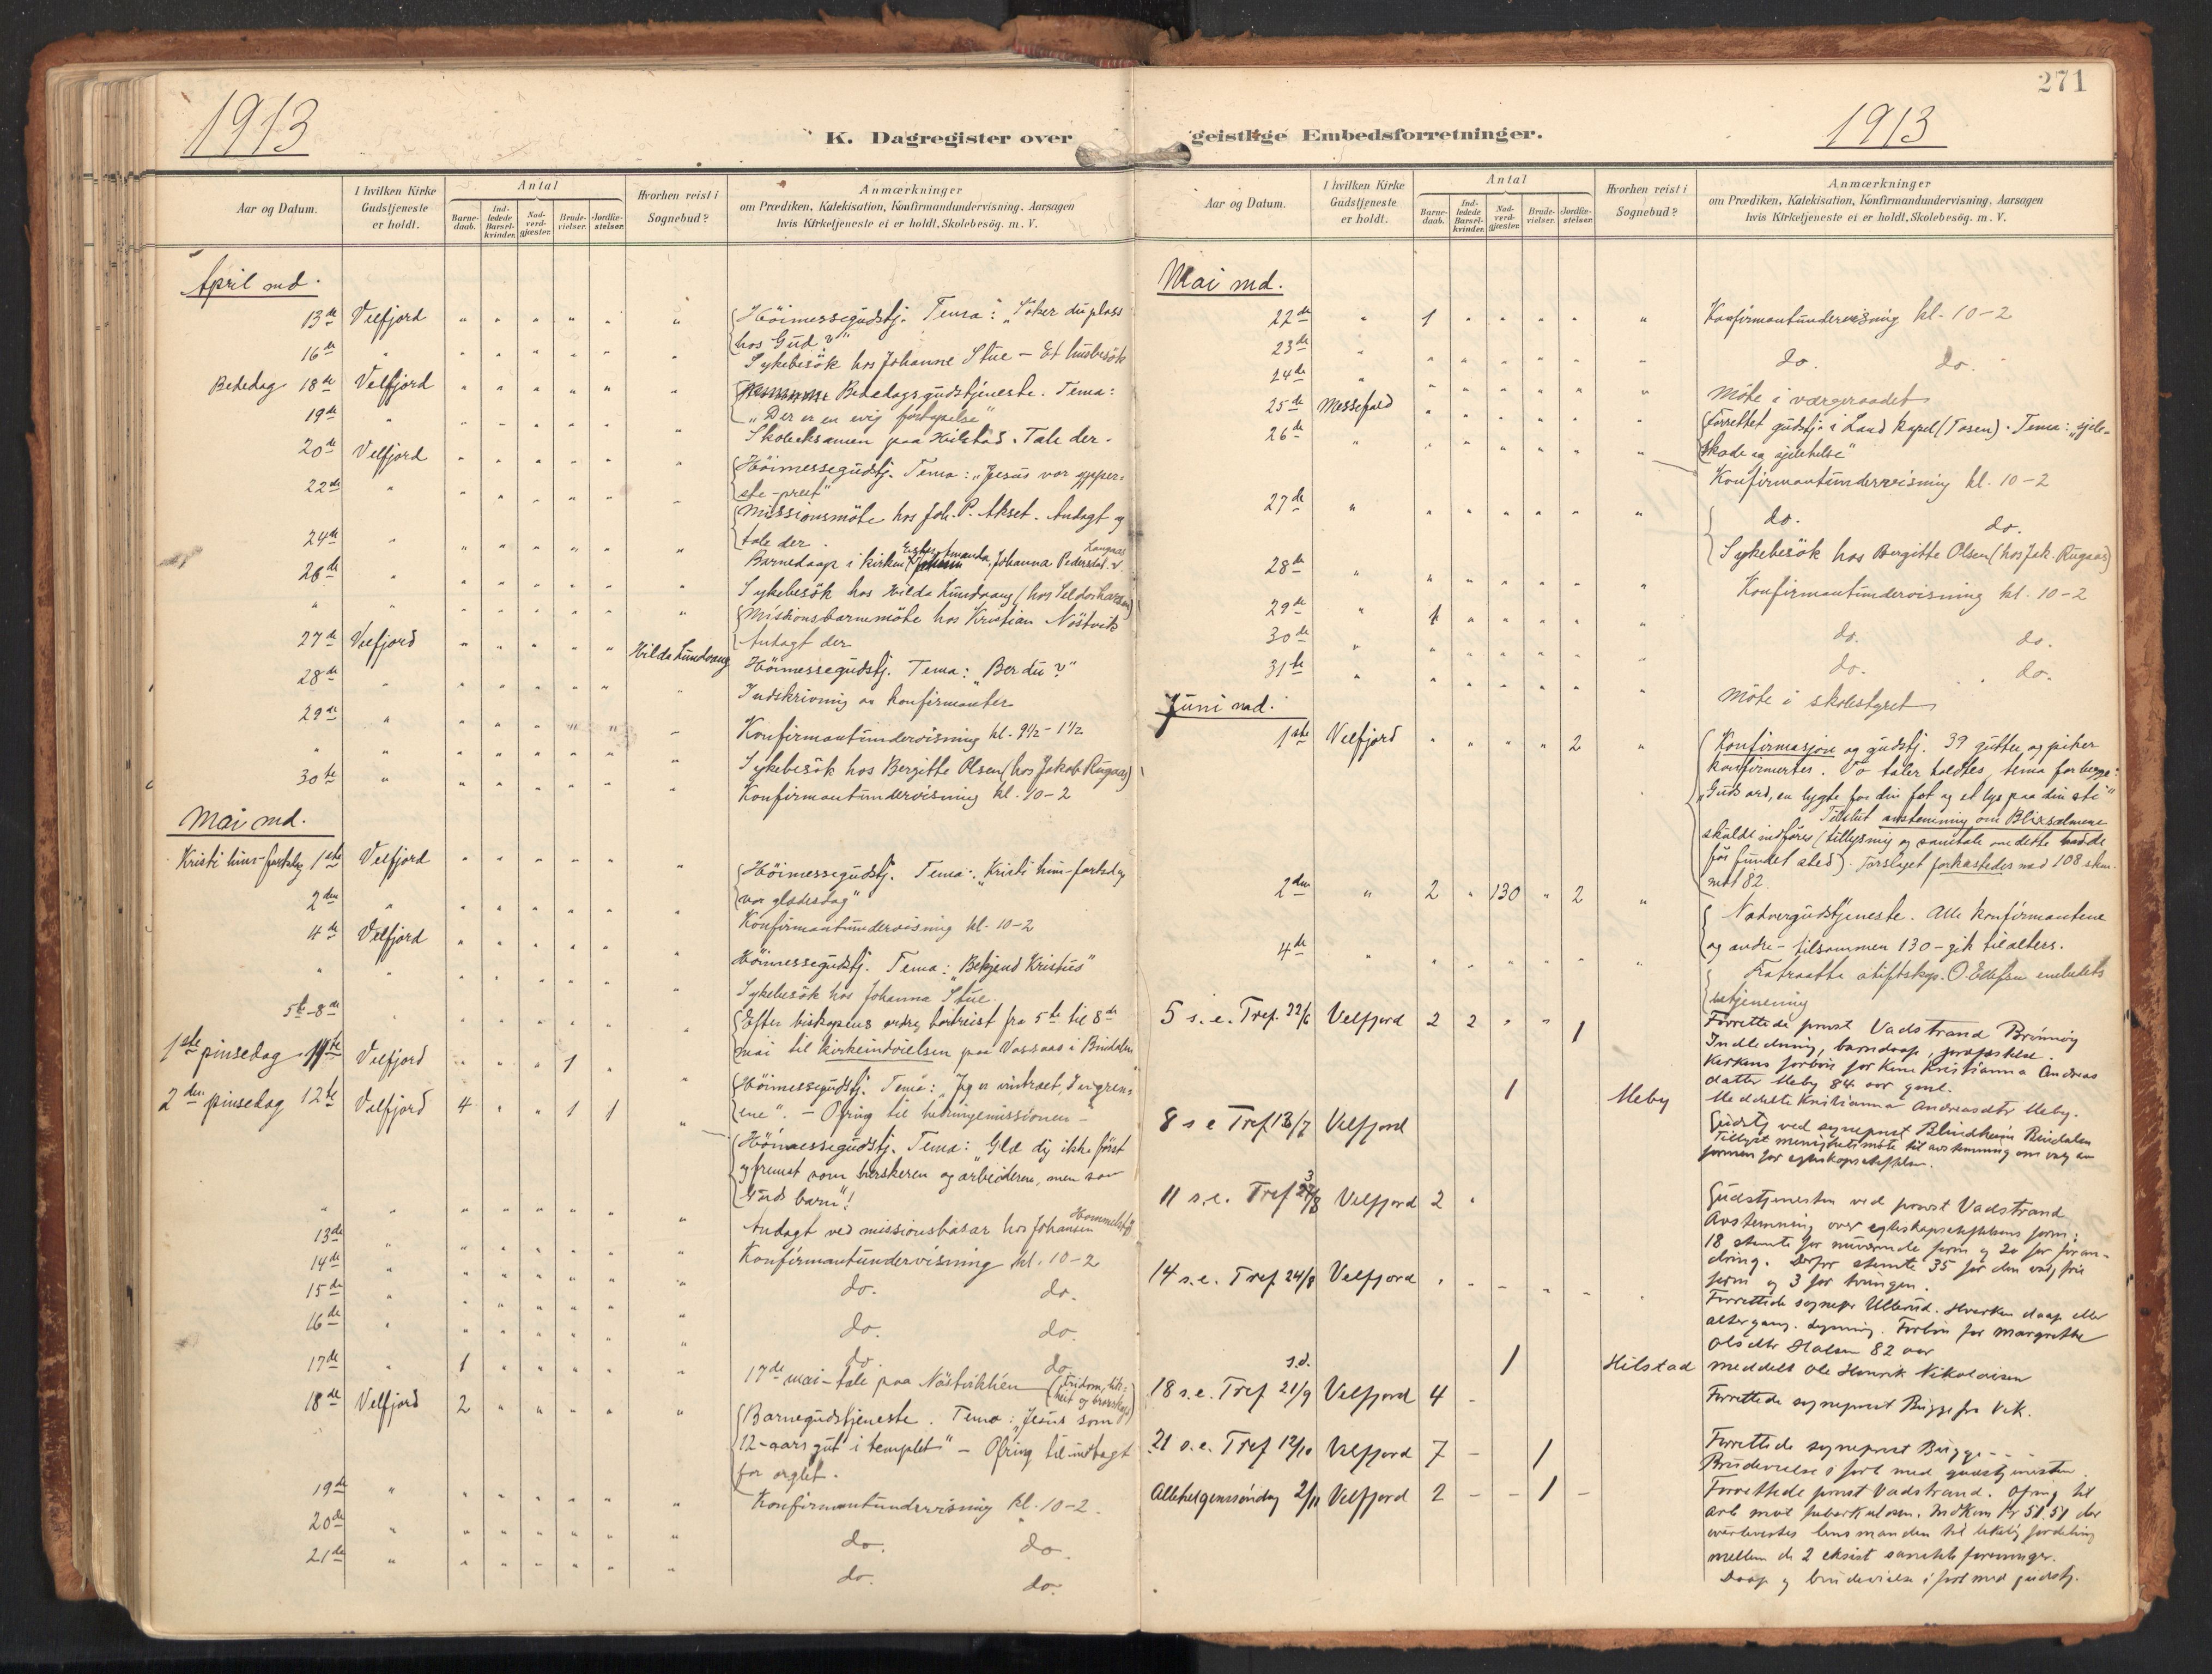 271
1913
K. Dagregister over
Aar og Datum.
I hvilken Kirke Gudstjeneste er holdt.
Antal
Barnedaab.
Indledede Barselkvinder.
Nadverdgjæster.
Brudevielser.
Jordfæstelser.
Hvorhen reist i Sognebud?
Anmærkninger
om Prædiken, Katekisation, Konfirmandundervisning, Aarsagen
hvis Kirketjeneste ei er holdt, Skolebesøg. m. V.
April md.
13de Velfjord " " " " " " Höimessegudstj. Tema: "Söker du plass
hos Gud?"
16de " " " " " " " Sykebesök hos Johanne Stue - Et husbesök
Bededag 18de Velfjord " " " " " " Bededagsgudstjeneste. Tema:
"Der er en evig fortapelse"
19de " " " " " " " Skoleeksamen paa Hilstad. Tale der.
20de Velfjord " " " " " " Höimessegudstj. Tema: "Jesus vor ypper-
ste-prest"
22de " " " " " " " Missionsmöte hos Joh. P. Akset. Andagt og
tale der.
24de " " " " " " " Barnedaap i kirken Ester Amanda Johanna Pedersdat. Langaas
26de " " " " " " " Sykebesök hos Hilda Lundvang (hos
" " " " " " " " Missionsbarnemöte hos Kristian Nöstvik
Andagt der
27de Velfjord " " " " " Hilda Lundvang Höimessegudstj. Tema: "Ber du?"
28de " " " " " " " Indskrivning av konfirmanter
29de " " " " " " " Konfirmantundervisning kl. 9½-1½
" " " " " " " " Sykebesök hos Bergitte Olsen (hos Jakob Rugaas)
30te " " " " " " " Konfirmantundervisning kl. 10-2
Mai md.
Kristi him-fartsdag 1ste Velfjord " " " " " " Höimessegudstj. Tema: "Kristi him-fartsdag
vor glædesdag"
2den " " " " " " " Konfirmantundervisning kl. 10-2
4de Velfjord " " " " " " Höimessegudstj. Tema: "Bekjend Kristus"
" " " " " " " " Sykebesök hos Johanna Stue.
5te-8de " Efter biskopens ordre bortreist fra 5te til 8de
mai til kirkeindvielsen paa Vassaas i Bindalen
1ste pinsedag 11te Velfjord " " " 1 " " Höimessegudstj. Tema: "Jeg er vintræet, I er gren-
ene". - Ofring til hedningemissionen -
2den pinsedag 12te Velfjord 4 " " 1 1 " Höimessegudstj. Tema: "Glæ dig ikke först
og fremst som hersker og arbeider, men som
Guds barn"!
" " " " " " " " Andagt ved missionsbasar hos Johansen Hommelstø
13de " " " " " " " Konfirmantundervisning kl. 10-2
14de " " " " " " " do. do.
15de " " " " " " " do. do.
16de " " " " " " " do. do.
17de " 1 " " " " " 17de mai-tale paa Nöstvikhæn
18de Velfjord 2 " " " " " Barnegudstjeneste. Tema: "Jesus som
12-aars gut i templet" - Ofring til indtægt
for orglet.
19de " " " " " " " Konfirmantundervisning kl. 10-2.
20de " " " " " " " do. do.
21de " " " " " " " do. do.
geistlige Embedsforretninger.
1913
Aar og Datum.
I hvilken Kirke Gudstjeneste er holdt.
Antal
Barnedaab.
Indledede Barselkvinder.
Nadverdgjæster.
Brudevielser.
Jordfæstelser.
Hvorhen reist i Sognebud?
Anmærkninger
om Prædiken, Katekisation, Konfirmandundervisning, Aarsagen
hvis Kirketjeneste ei er holdt, Skolebesøg. m. V.
Mai md.
22de " 1 " " " " " Konfirmantundervisning kl. 10-2
23de " " " " " " " do. do.
24de " " " " " " " Möte i værgeraadet
25de Messefald " " " " " " Forrettet gudstj. i Lande kapel (Tosen). Tema: "Sjele-
skade og sjelehelse"
26de " " " " " " " Konfirmantundervisning kl. 10-2
27de " " " " " " " do. do.
Sykebesök hos Bergitte Olsen (hos Jak. Rugaas)
28de " " " " " " " Konfirmantundervisning kl. 10-2
29de " 1 " " " " " do. do.
30de " " " " " " " do. do.
31te " " " " " " " Möte i skolestyret
Juni md.
1ste Velfjord " " " " 2 " Konfirmasjon og gudstj. 39 gutter og piker
konfirmertes. To taler holdtes, tema for begge:
"Guds ord, en lygte for din fot og et lys paa din sti"
Tilslut avstemning om Blixsalmene
skulde indföres (tillysning og samtale om dette hadde
för fundet sted). Forslaget forkastedes med 108 stem.
mot 82.
2den " 2 " 130 " 2 " Nadvergudstjeneste. Alle konfirmantene
og andre - tilsammen 130 - gik tilalters.
4de " " " " " " " Fratraadte stiftskap. O. Ellefsen embedets
betjening
5 s. e. Tref. 22/6 Velfjord 2 2 " " 1 Forrettede prost Vadstrand Brönnöy
Indledning, barnedaap, jordfæstelse.
Kirkens forbön for Kine Kristianna Andreas
datter Meby 84 aar gml.
1 Meby Meddelte Kristianna Andreasdtr Meby.
8 s e Tref 13/7 Velfjord Gudstj ved sogneprest Blindheim Bindalen
Tillyst menighetsmöte til avstemning om valg av
formen for egteskapsstiftelsen.
11 s. e. Tref 3/8 Velfjord 2 " Gudstjenesten ved prost Vadstrand
Avstemning over egteskapsstiftelsens form:
18 stemte for nuværende form og 20 for foran-
dring. Derfor stemte 35 for den valgfrie
form og 3 for tvungen.
14 s. e. Tref 24/8 Velfjord " - - - - " Forrettede sognepr Ullerud. Hverken daap eller
altergang. Lysning. Forbön for Margrethe
Olsdtr Halsen 82 aar
s.d. 1 Hilstad meddelt Ole Henrik Nikolaisen
18 s. e. Tref 21/9 Velfjord 4 - Forrettede sogneprest Bugge fra Vik.
21 s. e. Tref 12/10 Velfjord 7 - 1 Forrettede sogneprest Bugge
Brudevielse i forb med gudstjenesten.
Allehelgenssöndag 2/11 Velfjord 2 - - 1 - Forrettede prost Vadstrand. Ofring til
arb mot tuberkulosen. Indkom kr 51.51 der
overlevertes lensmanden til likelig fordeling
mellem de 2 eksist sanitets foreninger.
Daap og brudevielse i forb med gudstj.